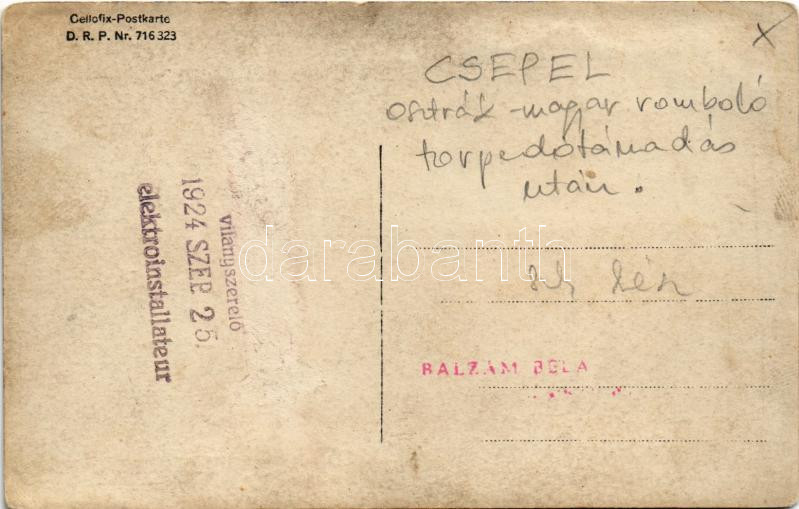 Cellofix-Postkarte
D. R. P. Nr. 716 323
CSEPEL
osztrák-magyar romboló
torpedótámadás
után.
villanyszerelő
1924 SZEP 25.
elektroinstallateur
BALZÁM BÉLA
darabanth